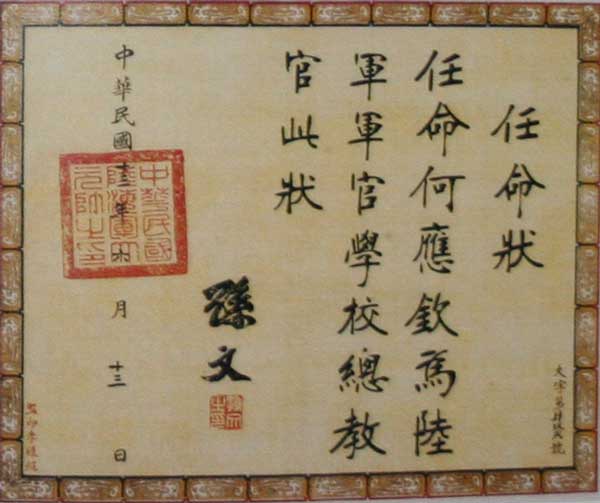 任命狀
任命何應欽為陸
軍軍官學校總教
官此狀
孫文
中華民國十三年月十三日
中華民國陸海軍大元帥之印